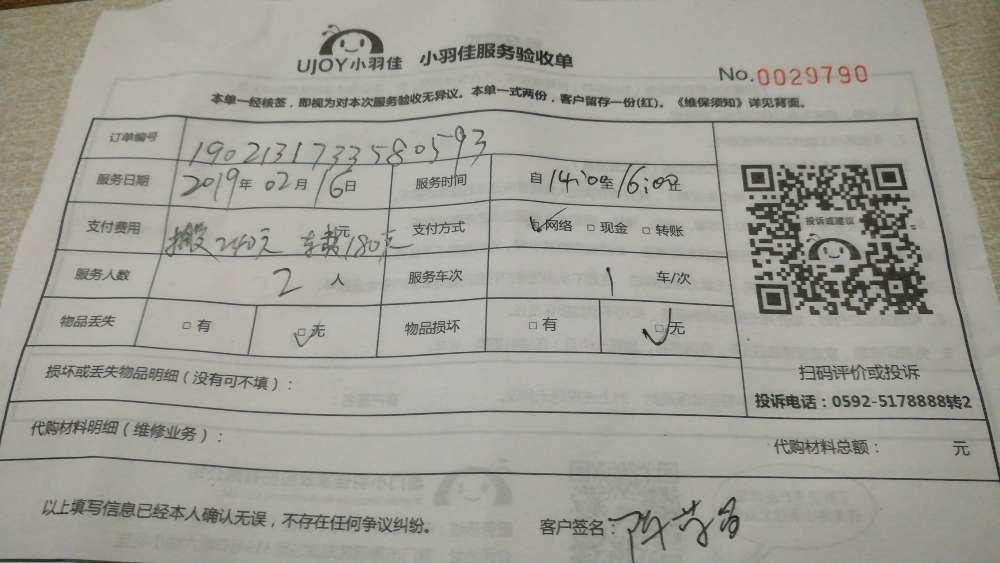 UJOY小羽佳 小羽佳服务验收单
No.0029790
本单一经核签，即视为对本次服务验收无异议。本单一式两份，客户留存一份(红)。《维保须知》详见背面。
订单编号 19021317335580593
服务日期 2019年 02月 16日 服务时间 自 14:00至 16:00止
支付费用 搬 240元 车费180元 元 支付方式 网络 □ 现金 □ 转账
服务人数 2 人 服务车次 1 车/次
物品丢失 □ 有 □ 无 物品损坏 □ 有 □ 无
损坏或丢失物品明细（没有可不填）：
代购材料明细（维修业务）：
代购材料总额： 元
投诉或建议
扫码评价或投诉
投诉电话：0592-5178888转2
以上填写信息已经本人确认无误，不存在任何争议纠纷。 客户签名：